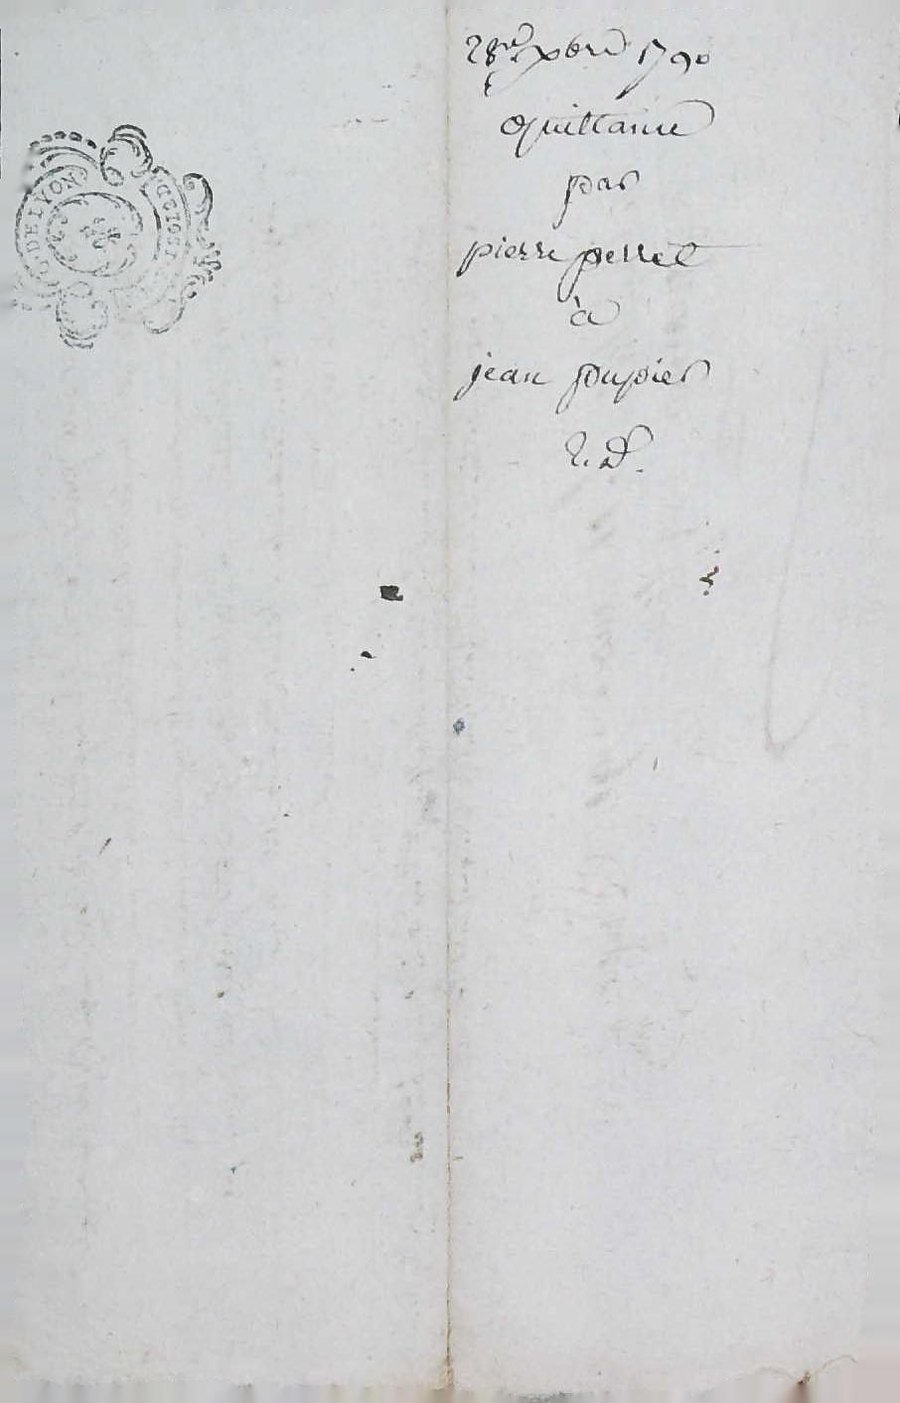 28.e xbre 1790
quittance
par
pierre perret
à
jean pupier
2. d.
DE LYON